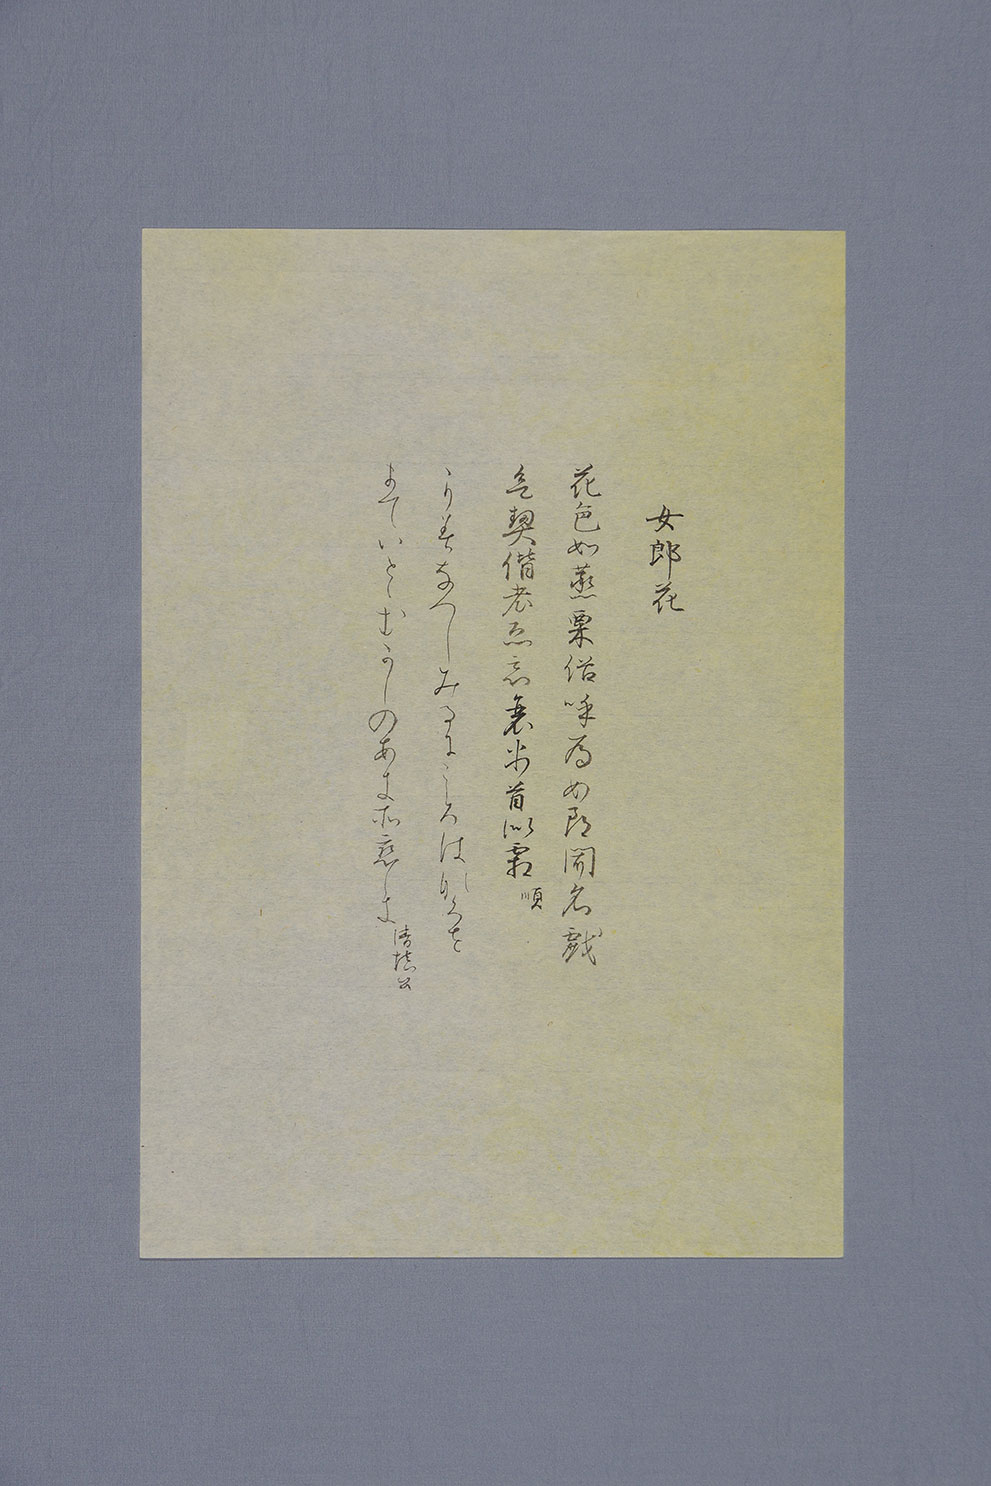 女郎花
花色如蒸粟俗呼為女郎聞名戯
欲契偕老恐悪衰翁首似霜 順
をみなへしみるにこゝろはなくさ
まていとゝむかしのあき所恋しき 清慎公